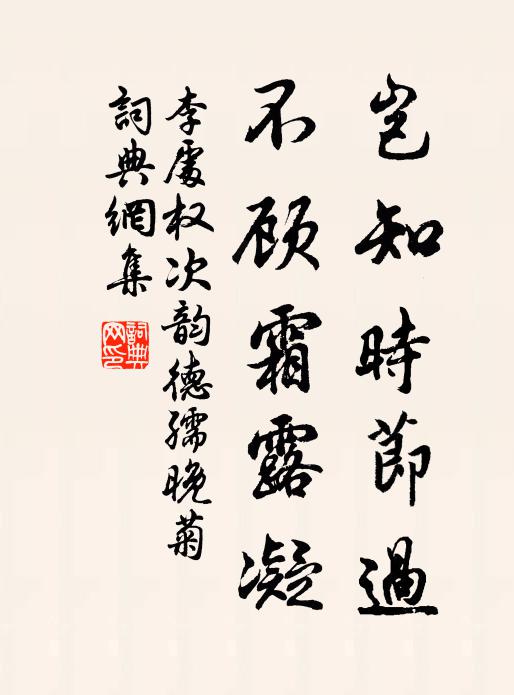 岂知時節過
不顾霜露凝
李處权次韵德孺晚菊
詞典網集
詞典網印